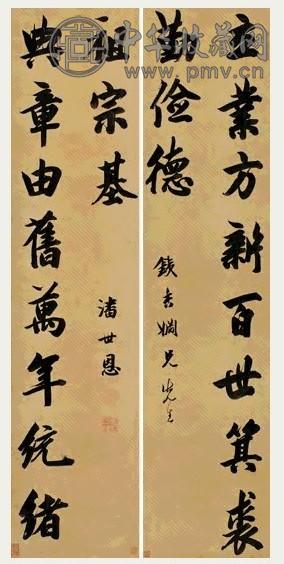 中华收藏网
www.pmv.cn
業方新百世箕裘
勤儉德
姻兄先生
典章由舊萬年統緒
祖宗基
潘世恩